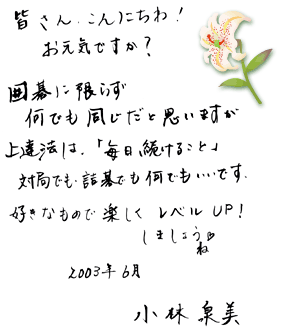 皆さん、こんにちわ!
お元気ですか?
囲碁に限らず
何でも同じだと思いますが
上達法は、「毎日、続けること」
対局でも、詰碁でも何でもいいです。
好きなもので楽しく レベルUP!
しましょうね
2003年6月
小林泉美